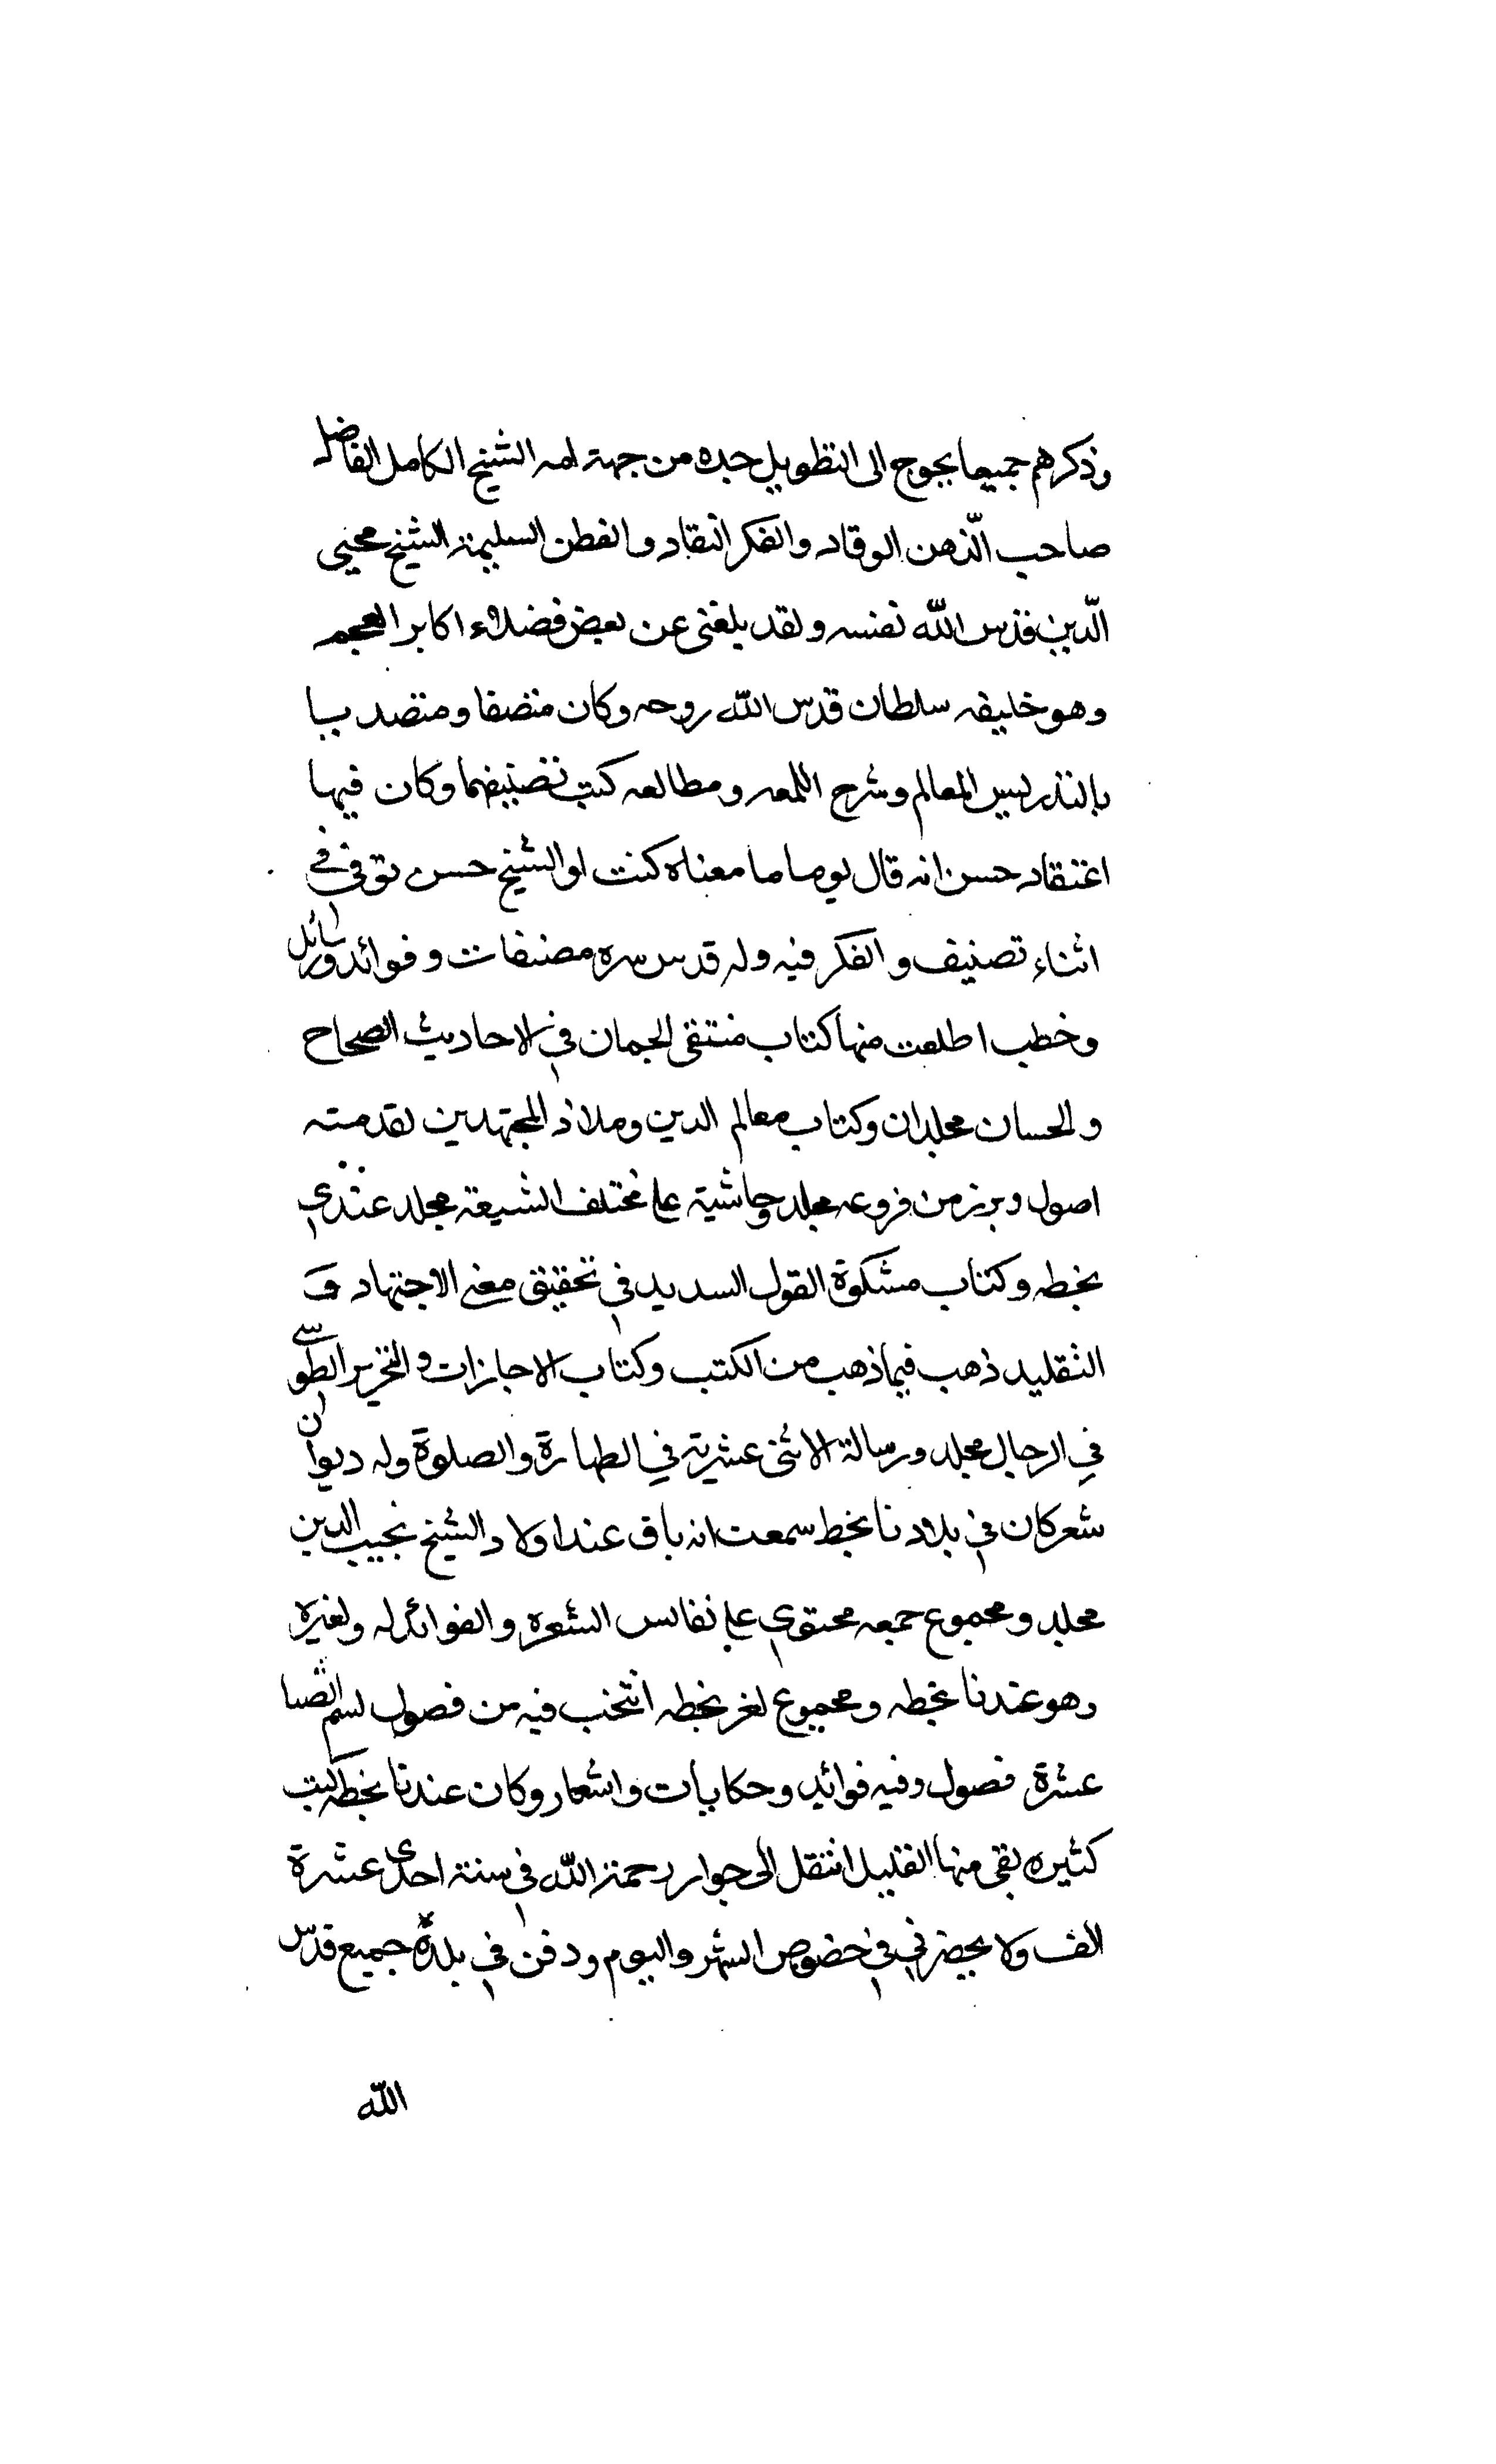 وذكرهم جميعا يحوج الى التطويل جده من جهة امه الشيخ الكامل الفاضل
صاحب الذّهن الوقاد والفكر النقاد والفطن السليمة الشيخ محيى
الدّين قدس اللّه نفسه ولقد بلغنى عن بعض فضلاء اكابر العجم
وهو خليفه سلطان قدس اللّه روحه وكان منصفا ومتصد ببا
بالتدريس المعالم وشرح اللمعه ومطالعه كتب تصنيفهما وكان فيها
اعتقاد حسن انه قال يوما ما معناه كنت او الشيخ حسن توفى في
اثناء تصنيف والفكر فيه وله قدس سره مصنفات وفوائد ورسائل
وخطب اطلعت منها كتاب منتقى الجمان في الاحاديث الصحاح
والحسان مجلدان وكتاب معالم الدين وملاذ المجتهدين تقدمته
اصول وبرز من فروعه مجلد وحاشية على مختلف الشيعة مجلد عندي
بخطه وكتاب مشكوة القول السديد في تحقيق معنى الاجتهاد و
التقليد ذهب فيما ذهب من الكتب وكتاب الاجازات والتحرير الطوسي
في الرجال مجلد ورسالة الاثنى عشرية في الطهارة والصلوة وله ديوان
شعر كان في بلادنا بخط سمعت انه باق عند اولاد الشيخ نجيب الدين
مجلد ومجموع جمعه محتوي على نفائس الشعره والفوائد له ولغيره
وهو عندنا بخطه ومجموع لغر بخطه انتخب فيه من فصول نسيم الصبا
عشرة فصول وفيه فوائد وحكايات واشعار وكان عندنا بخطه كتب
كثيره بقى منها القليل انتقل الى جوار رحمة اللّه في سنة احدى عشرة
الف ولا يحضرني في خصوص الشهر واليوم ودفن في بلدة جميع قدّس
اللّه